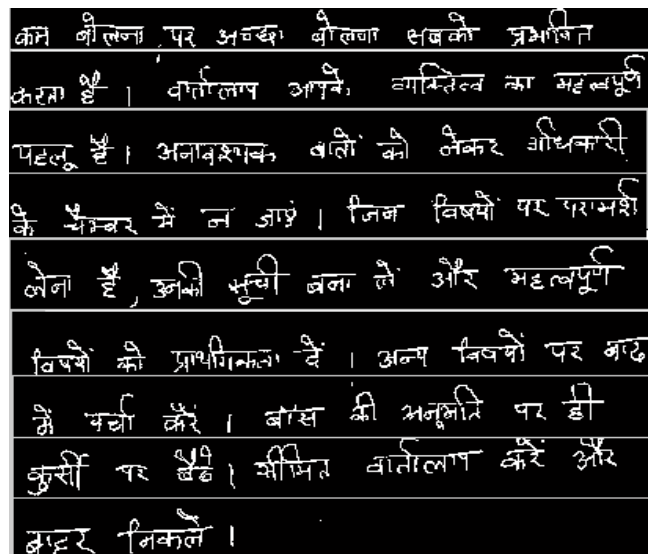 कम बोलना पर अच्छा बोलना सबको प्रभावित
करता है । वार्तालाप आपके व्यक्तित्व का महत्वपूर्ण
पहलू है । अनावश्यक बातों को लेकर अधिकारी
के चैम्बर में न जाएं । जिन विषयों पर परामर्श
लेना है, उनकी सूची बना लें और महत्वपूर्ण
विषयों को प्राथमिकता दें । अन्य विषयों पर बाद
में चर्चा करें । बॉस की अनुमति पर ही
कुर्सी पर बैठें । सीमित वार्तालाप करें और
बाहर निकलें ।